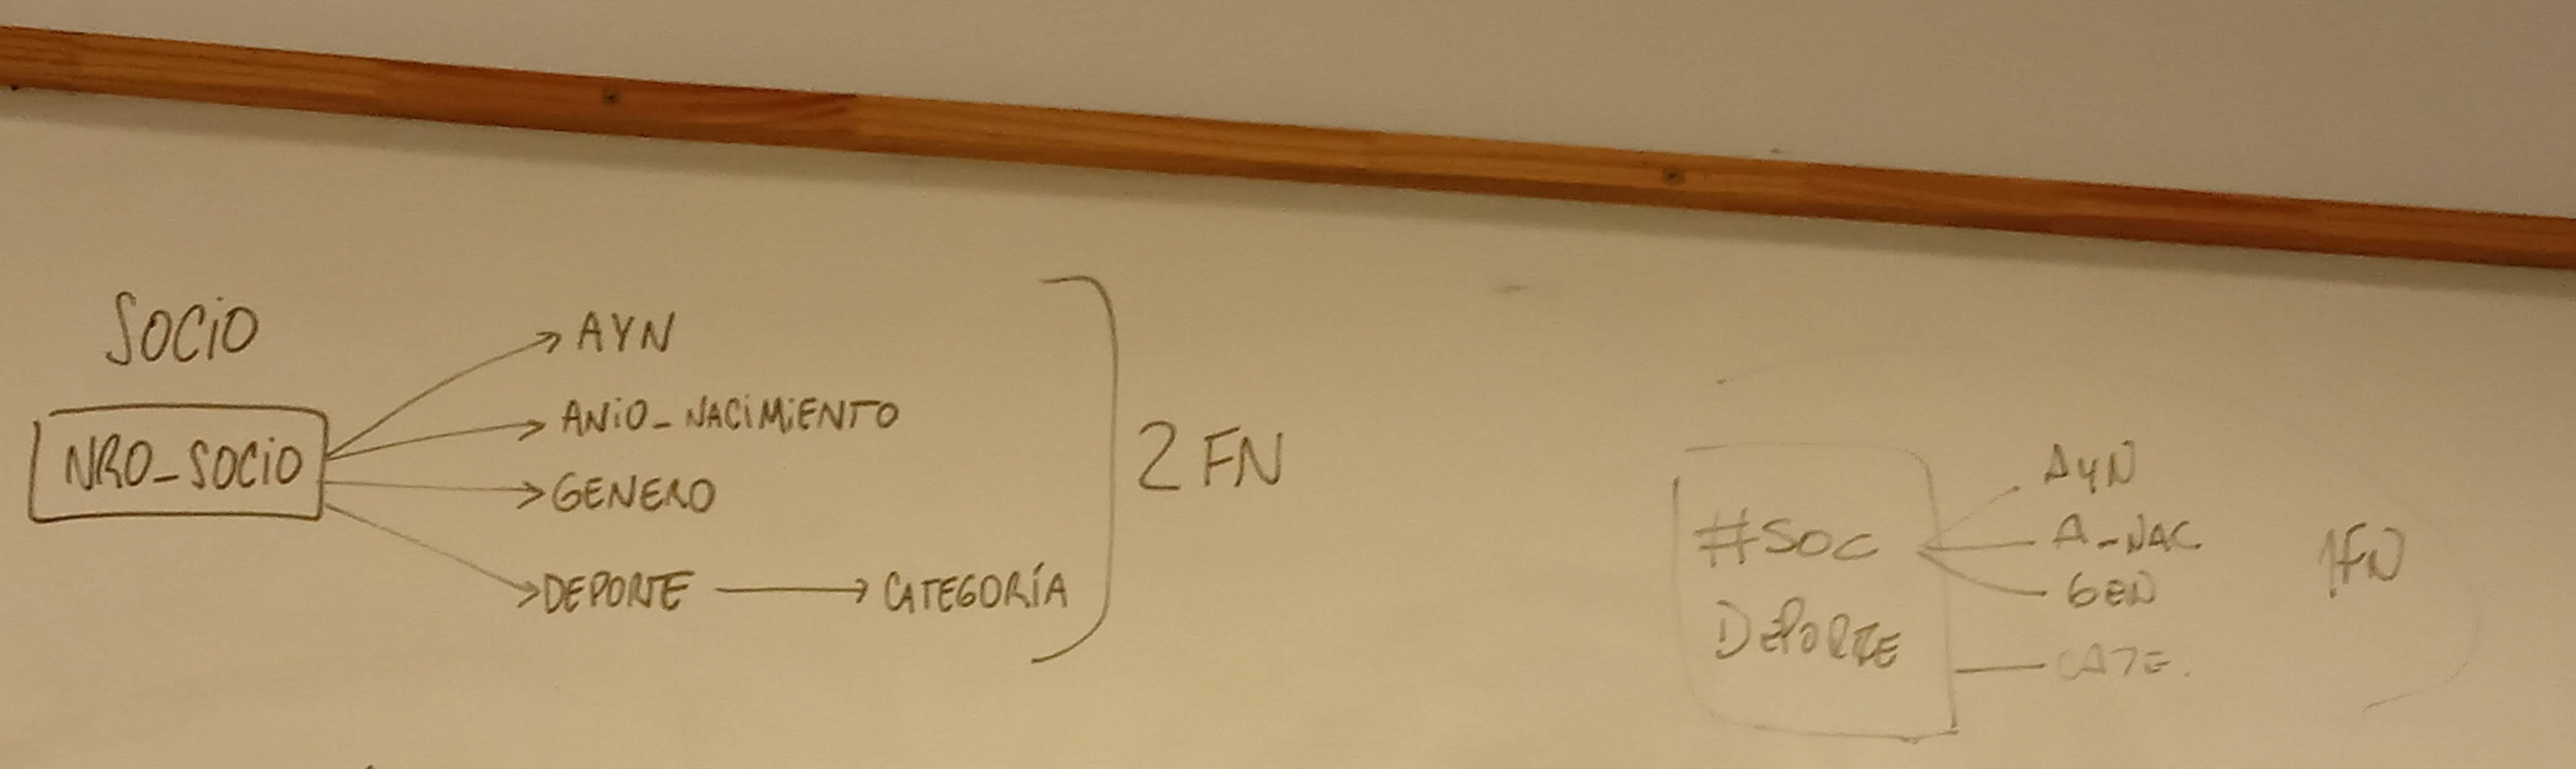 SOCIO
NRO_SOCIO
AYN
ANIO_NACIMIENTO
GENERO
DEPORTE CATEGORÍA
2FN
#SOC
DEPORTE
AYN
A_NAC
GEN
CATE.
1FN